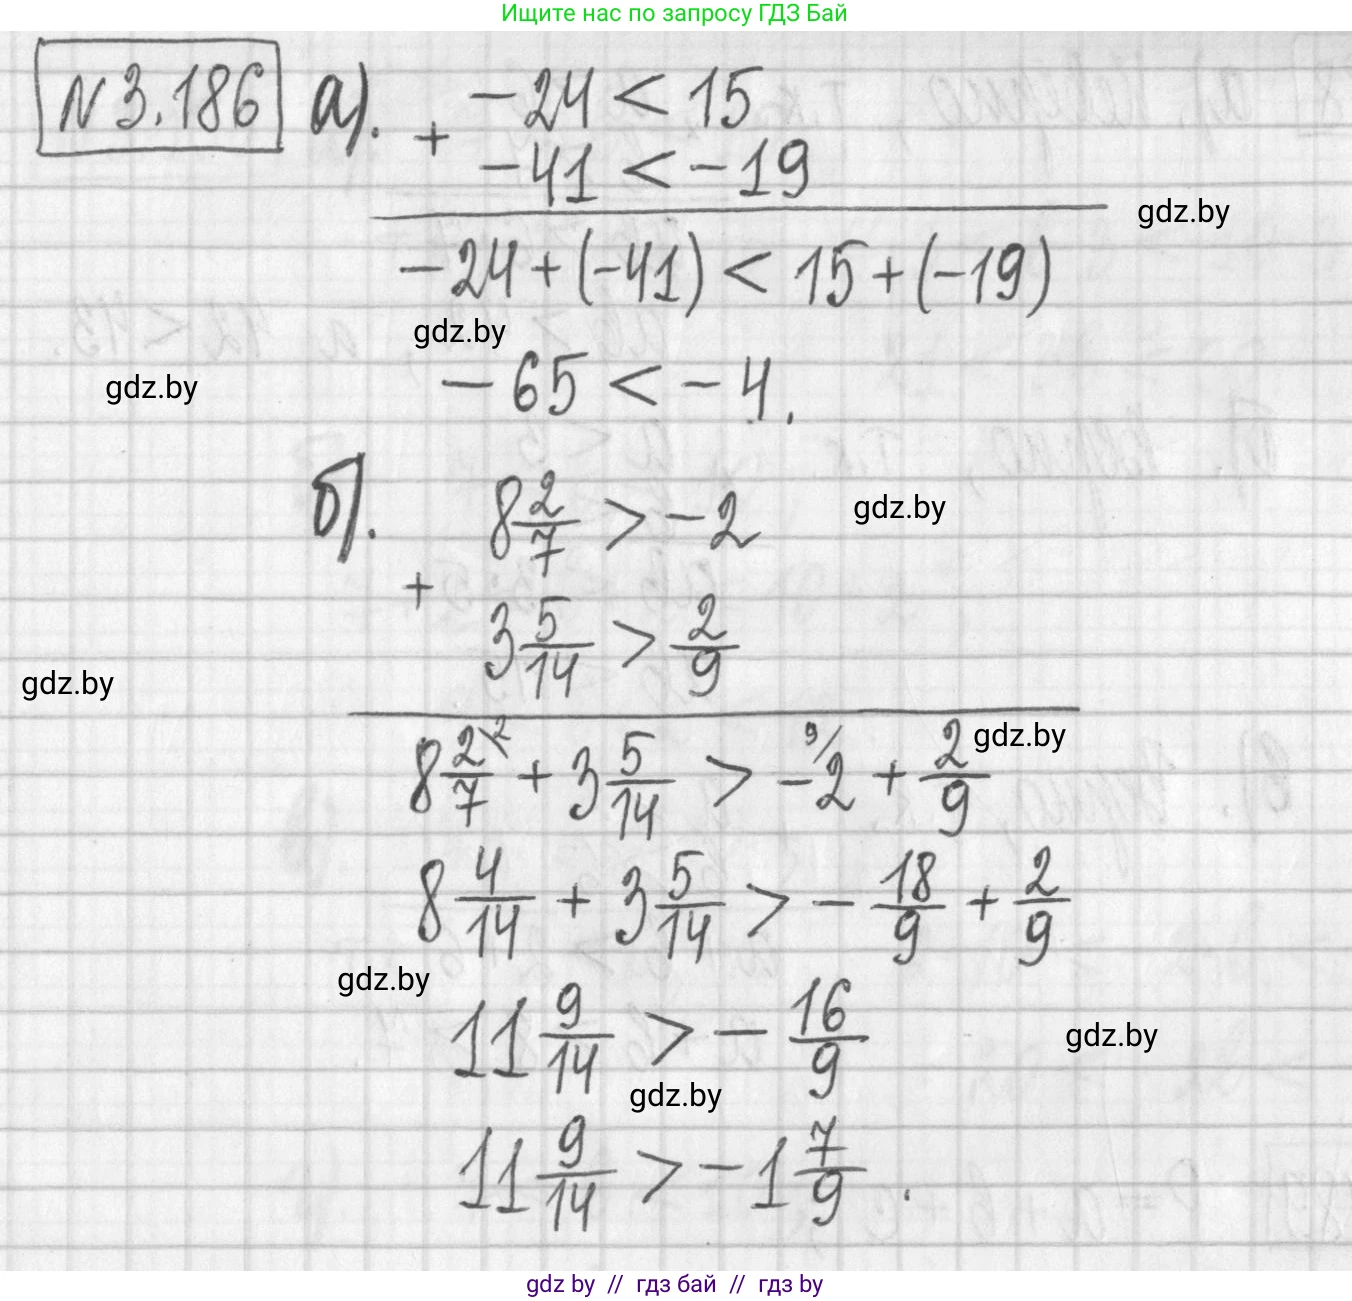 Ищите нас по запросу ГДЗ Бай
N 3.186 а). -24 < 15
+
-41 < -19
gdz.by
-24 + (-41) < 15 + (-19)
gdz.by
-65 < -4.
gdz.by
б). 8 2/7 > -2
gdz.by
+
3 5/14 > 2/9
gdz.by
8 2/7 \2 + 3 5/14 > 9/ -2 + 2/9
gdz.by
8 4/14 + 3 5/14 > - 18/9 + 2/9
gdz.by
11 9/14 > - 16/9
gdz.by
gdz.by
11 9/14 > -1 7/9.
gdz by // гдз бай // гдз by